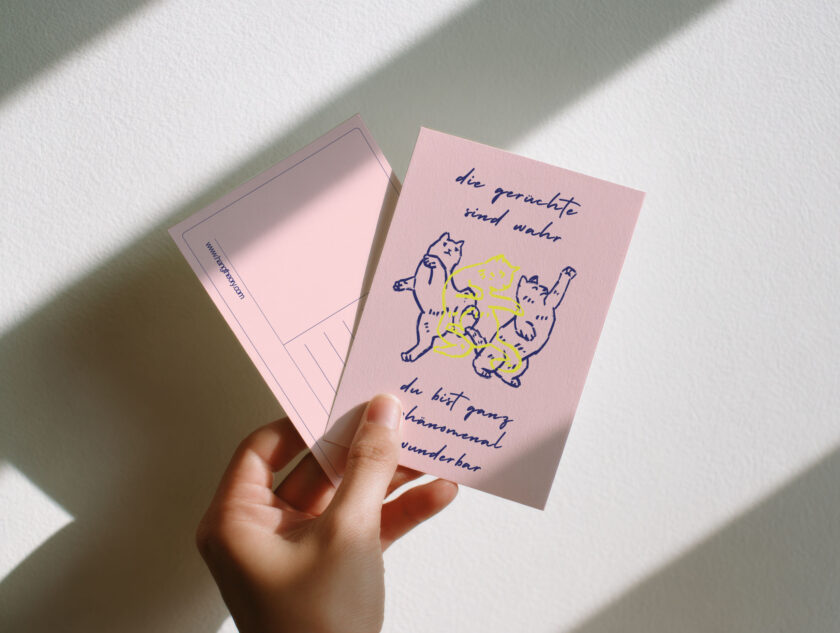 die gerüchte
sind wahr
du bist ganz
phänomenal
wunderbar
www.hangtheory.com